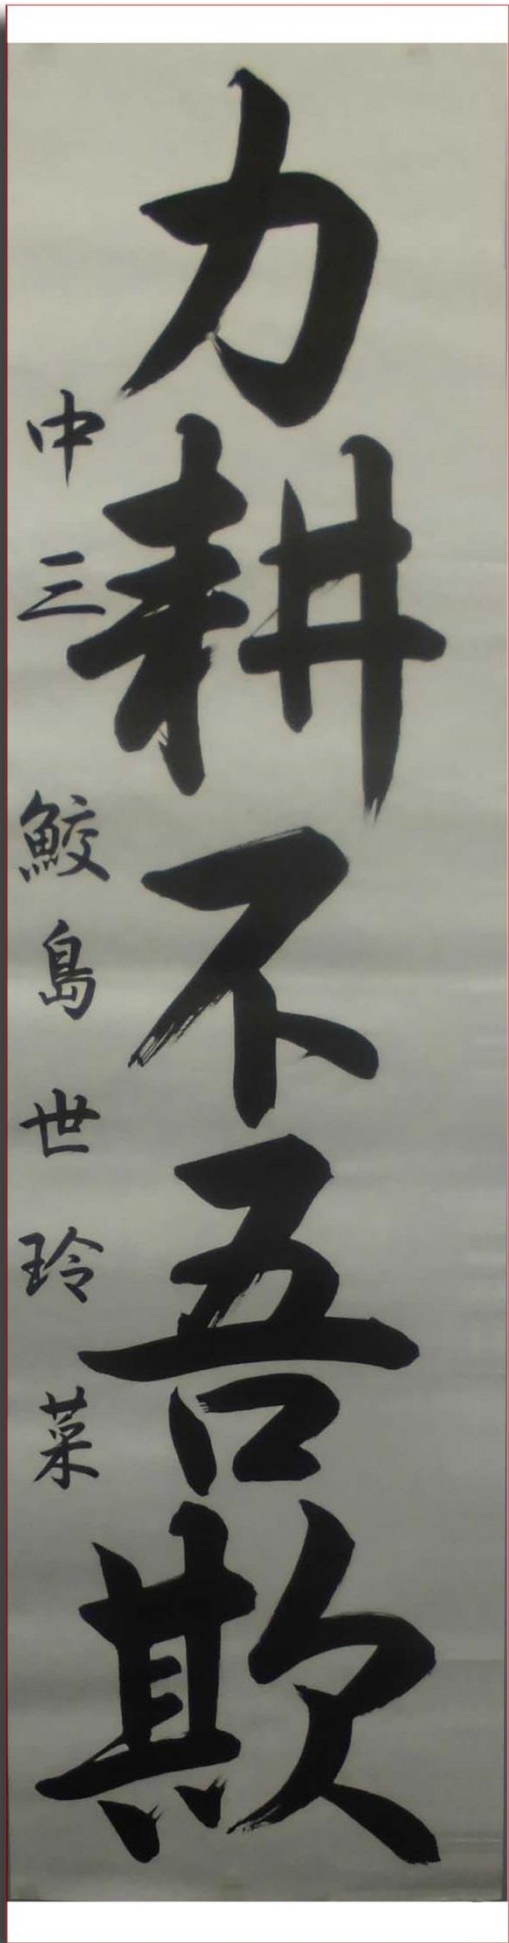 力耕不吾欺
中三 鮫島世玲菜